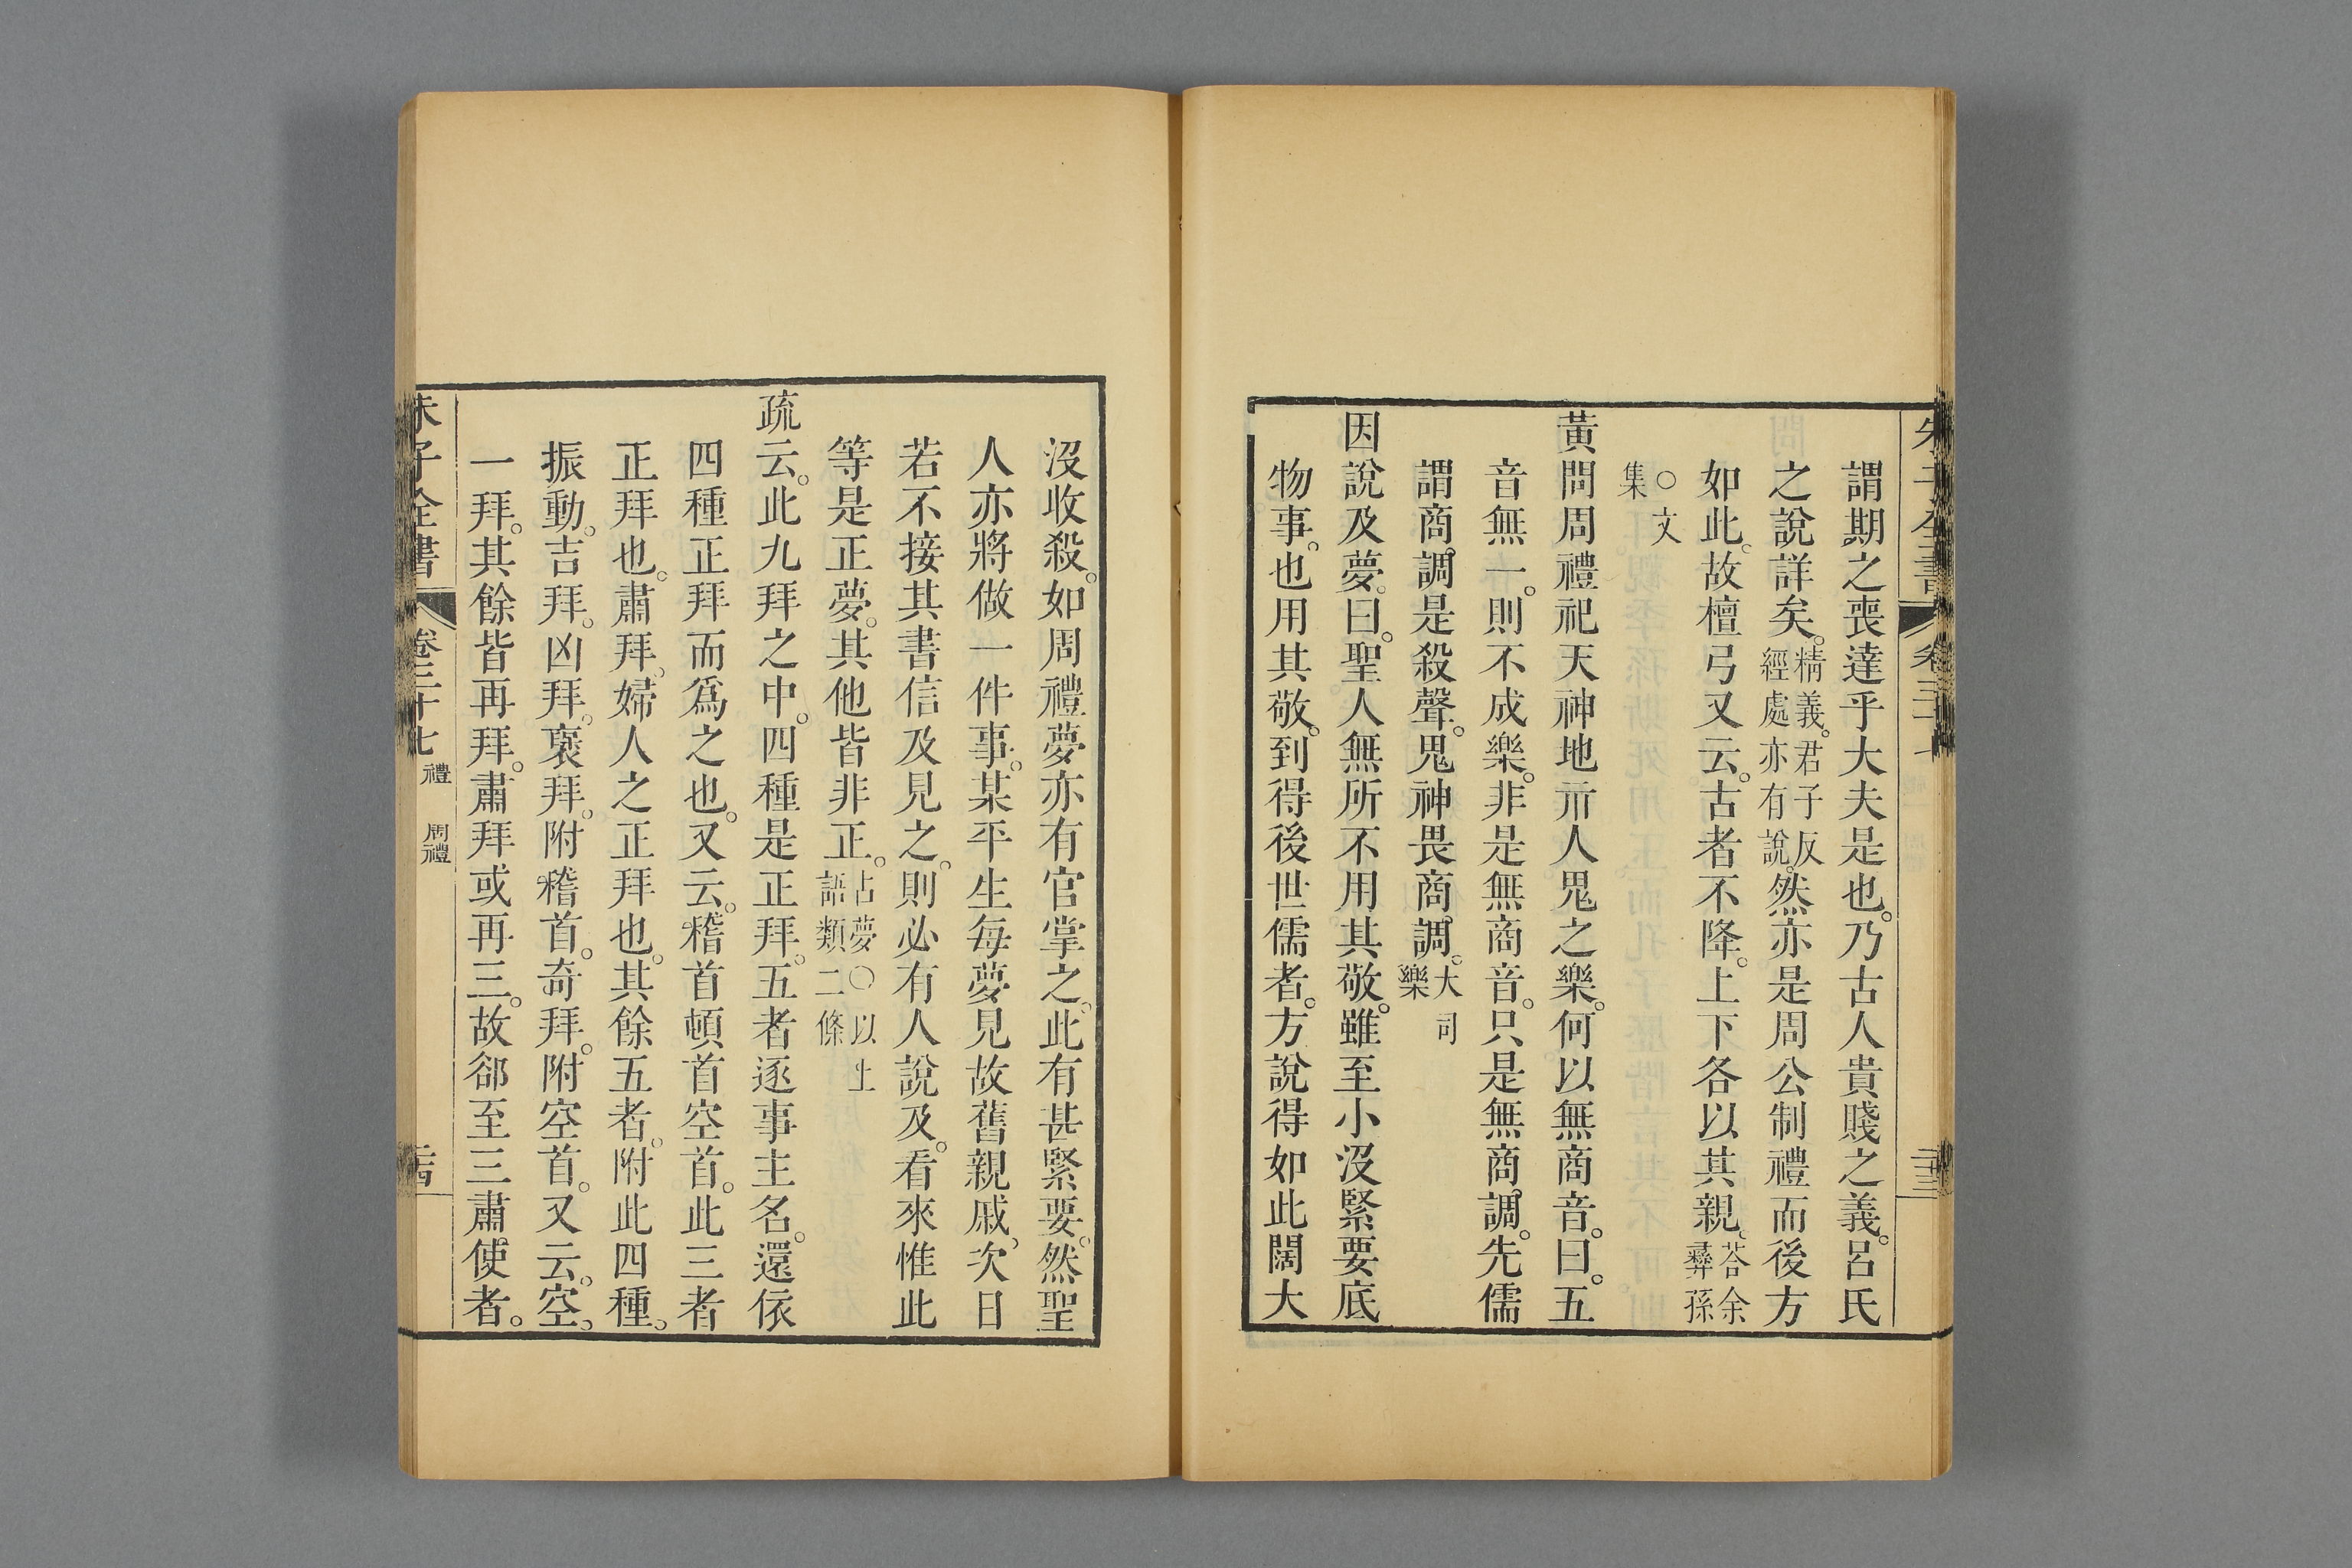 朱子全書 卷三十七 二十三
謂期之喪達乎大夫是也。乃古人貴賤之義。呂氏
之說詳矣。精義。君子反經處亦有說。然亦是周公制禮而後方
如此。故檀弓又云。古者不降。上下各以其親。荅余彝孫
○文集
黃問周禮祀天神地示人鬼之樂。何以無商音。曰。五
音無一。則不成樂。非是無商音。只是無商調。先儒
謂商調是殺聲。鬼神畏商調。大司樂
因說及夢。曰。聖人無所不用其敬。雖至小沒緊要底
物事。也用其敬。到得後世儒者。方說得如此闊大
沒收殺。如周禮夢亦有官掌之。此有甚緊要。然聖
人亦將做一件事。某平生每夢見故舊親戚。次日
若不接其書信及見之。則必有人說及。看來惟此
等是正夢。其他皆非正。占夢○以上語類二條
疏云。此九拜之中。四種是正拜。五者逐事主名。還依
四種正拜而爲之也。又云。稽首頓首空首。此三者
正拜也。肅拜。婦人之正拜也。其餘五者。附此四種。
振動。吉拜。凶拜。褒拜。附稽首。奇拜。附空首。又云。空。
一拜。其餘皆再拜。肅拜或再三。故郤至三肅使者。
朱子全書 卷三十七 禮 周禮 二十四